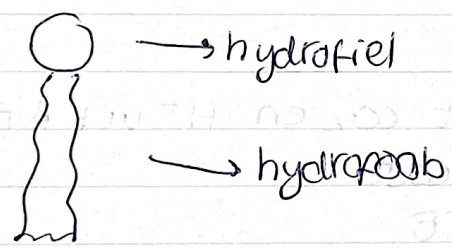 hydrofiel
hydrofoob